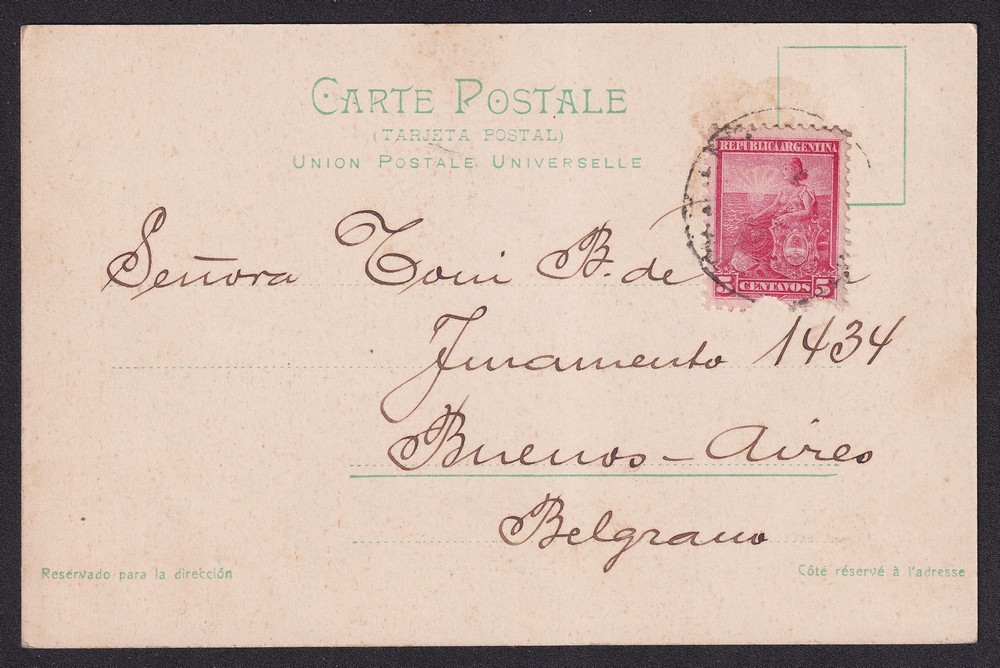 CARTE POSTALE
(TARJETA POSTAL)
UNION POSTALE UNIVERSELLE
REPUBLICA ARGENTINA
5 CENTAVOS 5
Señora Toni B. de
Juramento 1434
Buenos-Aires
Belgrano
Reservado para la dirección
Côté réservé à l'adresse